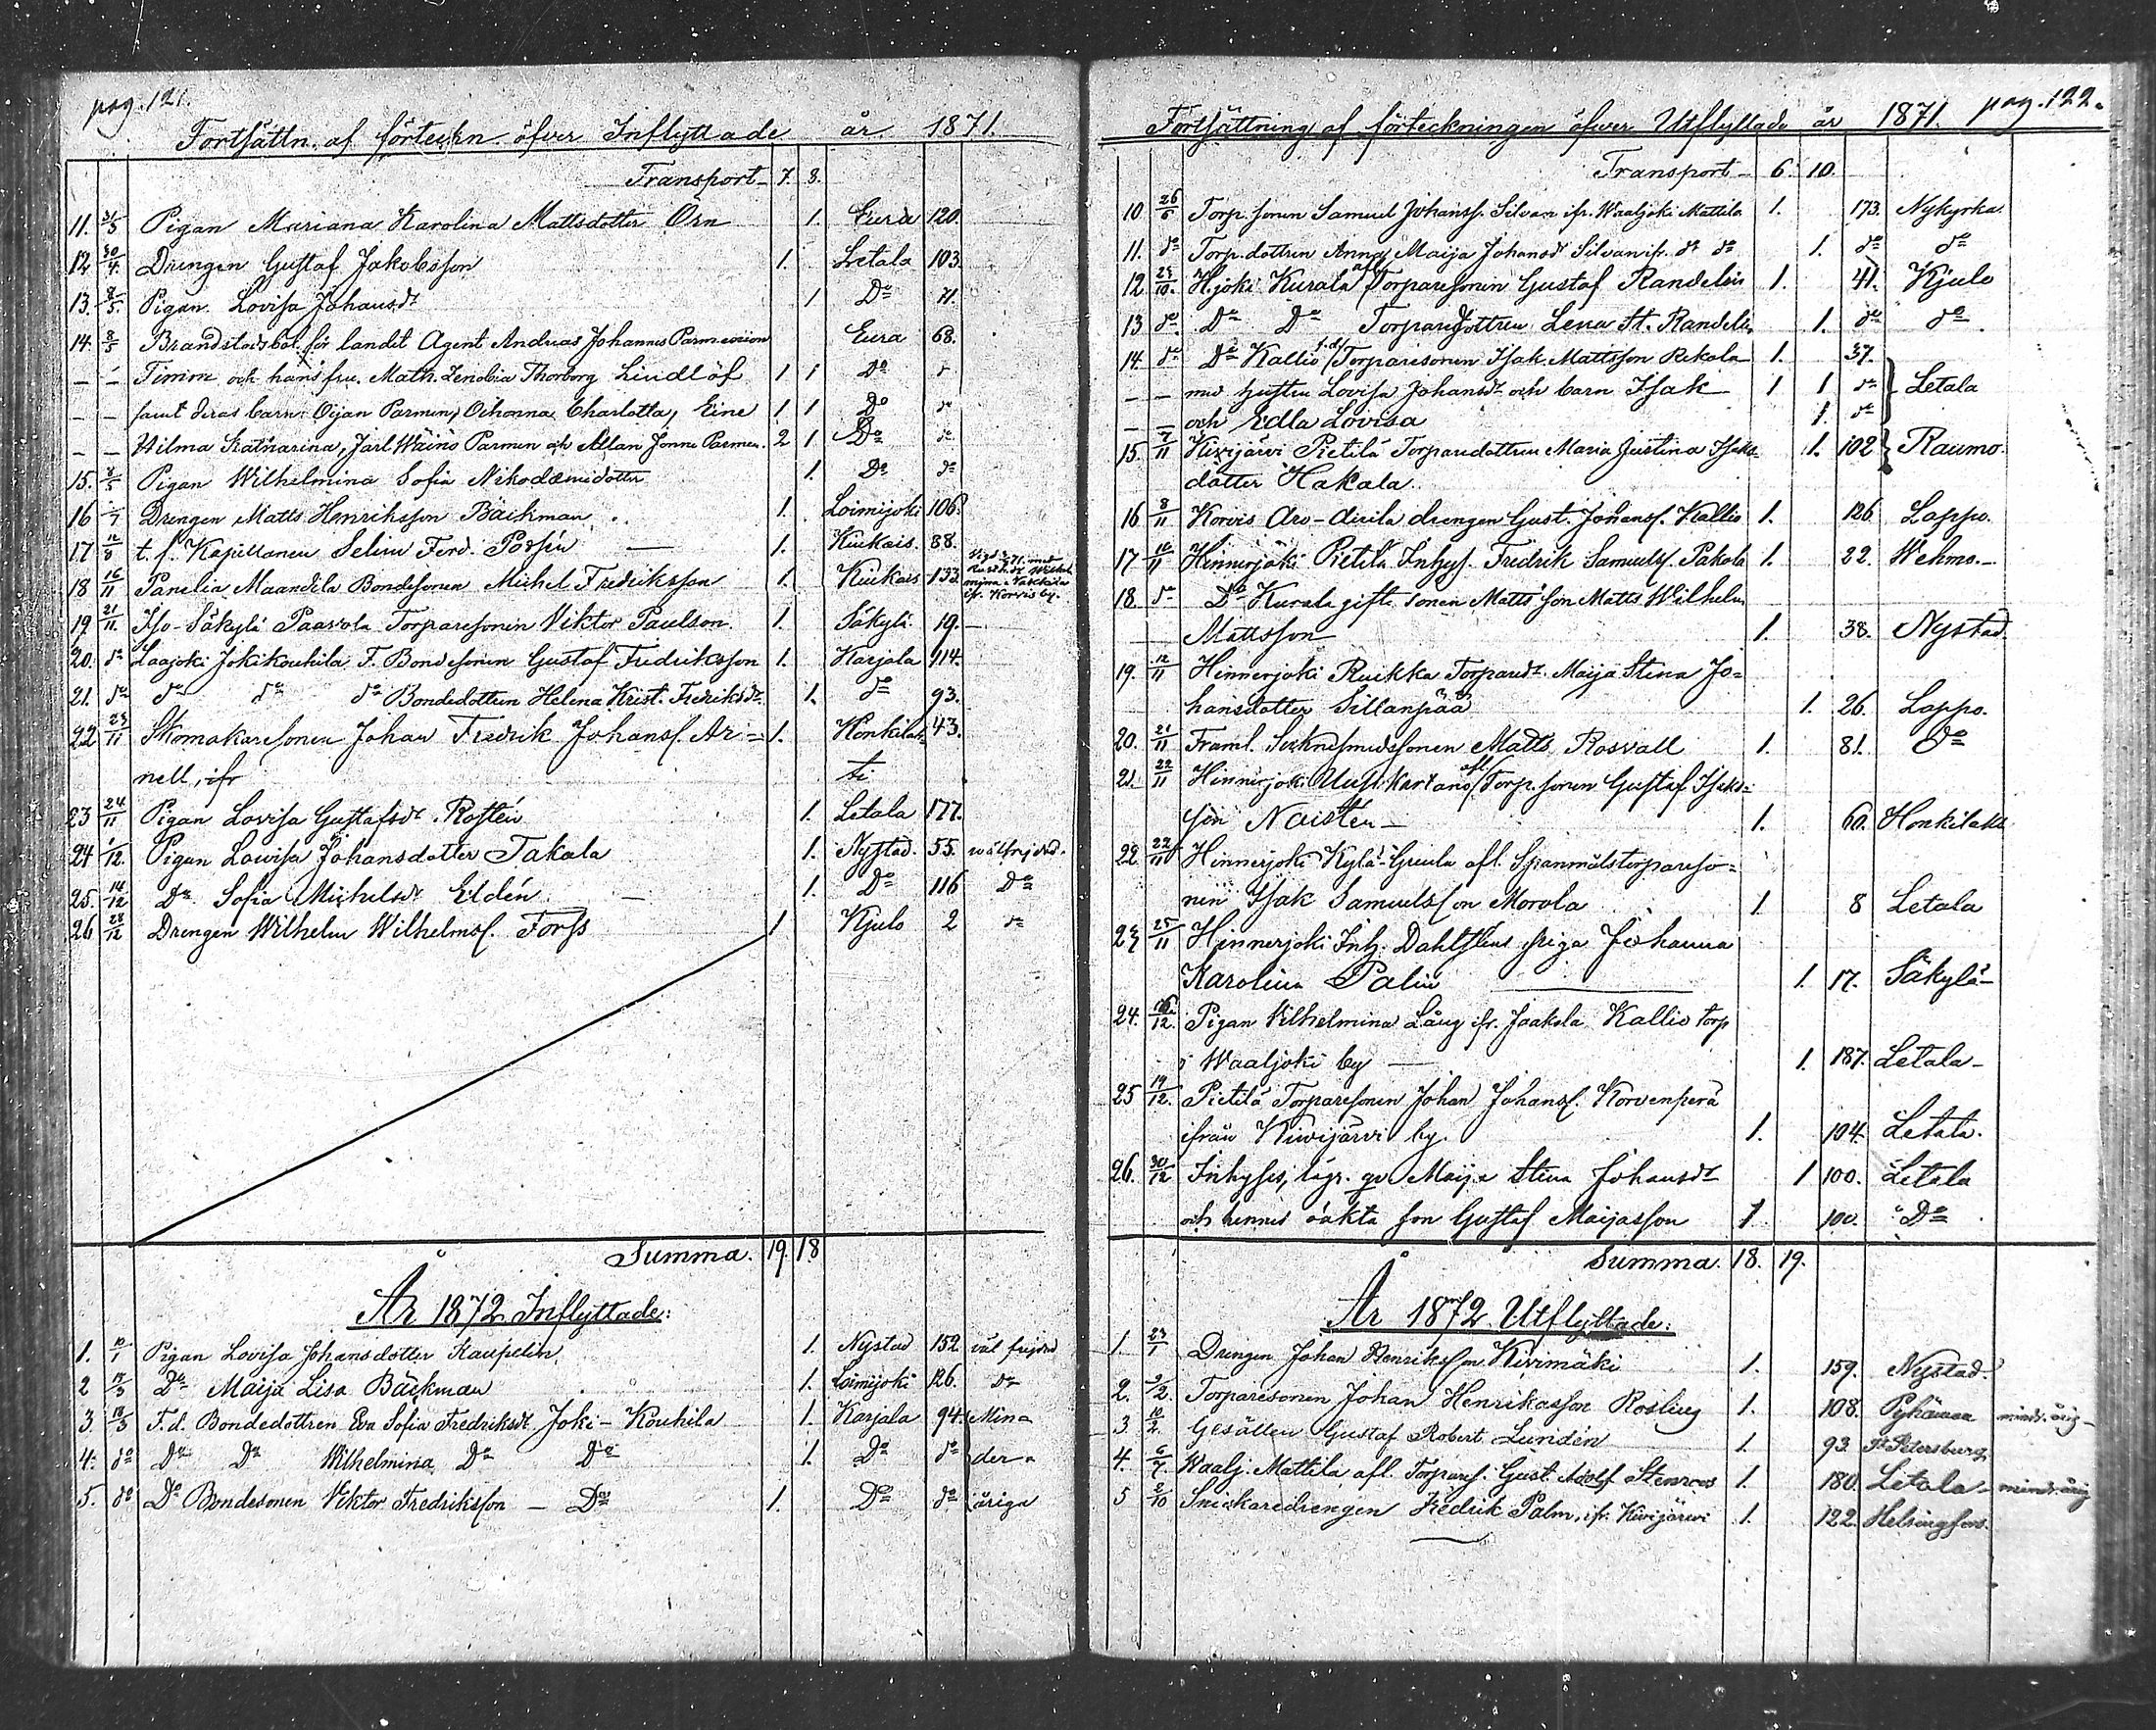 pag. 121.
Fortsättn. af förteckn. öfver Inflyttade år 1871.
Transport 7. 8.
11. 31/3 Pigan Mariana Karolina Mattsdotter Örn 1. Eura 120.
12 30/4. Drengen Gustaf Jakobsson 1. Letala 103.
13. 8/5. Pigan Lovisa Johansdr 1 Do 71.
14. 8/5 Brandstodsbol. för landet Agent Andreas Johannes Parmenion Eura 68.
– – Timme och hans fru Math. Zenobia Thorborg Lindlöf 1 1 Do
– – samt deras barn: Oijan Parmen, Charlotta, Eine 1 1 Do do
– – Hilma Katharina, Jarl Wäinö Parmen och Allan Jonne Parmen. 2 1 Do do
15. 8/5 Pigan Wilhelmina Sofia Nikodemidotter 1. Do do
16 /7 Drengen Matts Henriksson Bäckman 1. Loimijoki 106.
17 12/8 t. f. Kapellanen Selim Ferd. Porsén 1. Kiukais. 88.
18 16/11 Panelia Maandela Bondesonen Michel Fredriksson 1. Kiukais 133.
ifr. Korvis by.
19 21/11. Iso-Säkylä Paavola Torparesonen Viktor Paulson. 1. Säkylä 19.
20. do Laajoki Jokikouhila F. Bondesonen Gustaf Fredriksson 1. Karjala 114.
21. do do do do Bondedottren Helena Krist. Fredriksdr. 1. do 93.
22 23/11 Skomakaresonen Johan Fredrik Johanss. Ar= 1. Honkilah= 43.
nell, ifr ti
23 24/11 Pigan Lovisa Gustafsdr. Rostén 1. Letala 177.
24 1/12. Pigan Lovisa Johansdotter Takala 1. Nystad. 55. välfrejdad.
25. 14/12 Do Sofia Michelsdr Eldén 1. Do 116 Do
26 28/12 Drengen Wilhelm Wilhelmss. Forss 1 Kjulo 2 do
Summa. 19. 18
År 1872 Inflyttade:
1. 10/1 Pigan Lovisa Johansdotter Kaupelin 1. Nystad 152 väl frejdad
2 15/3 Do Maija Lisa Bäckman 1. Loimijoki 126. do
3 18/3 F.d. Bondedottren Eva Sofia Fredriksdr Joki-Kouhila 1. Karjala 94. Min=
4. do Do Do Wilhelmina Do Do 1. Do do der=
5. do Do Bondesonen Viktor Fredriksson – Do 1. Do do åriga
pag. 122.
Fortsättning af förteckningen öfver Utflyttade år 1871.
Transport 6. 10.
10 26/6 Torp.sonen Samuel Johanss. Silvan ifr. Waaljoki Mattila 1. 173. Nykyrka
11. do Torp.dottren Anna Maija Johansdr Silvan ifr. do do 1. do do
12 23/10. H.joki Kurala afl Torparesonen Gustaf Randelin 1. 41. Kjulo
13 do. Do Do Torparedottren Lena St. Randelin 1. do do
14. do Do Kallio f.d. Torparesonen Isak Mattsson Rekola 1. 37.
– – med hustru Lovisa Johansdr och barn Isak 1 1 do Letala
– – och Edla Lovisa 1. do
15. 7/11 Kivijärvi Pietilä Torparedottren Maria Justina Isaks=
dotter Hakala 1. 102 Raumo.
16 8/11 Korvis Aro- drengen Gust. Johanss. Kallio 1. 126 Lappo.
17 10/11 Hinnerjoki Pietilä Inhys. Fredrik Samuelss. Pakola 1. 22. Wehmo.
18. do Do Kurala gifte sonen Matts son Matts Wilhelm
Mattsson 1. 38. Nystad
19. 12/11 Hinnerjoki Ruikka Torparedr. Maija Stina Jo=
hansdotter Sillanpää 1. 26. Lappo.
20. 21/11 Framl. Sockensmedssonen Matts Rosvall 1. 81. Do
21. 22/11 Hinnerjoki Uusikartano afl. Torp.sonen Gustaf Isaks=
son Naistén 1. 60. Honkilaks
22 22/11 Hinnerjoki Kylä-Greula afl. Spanmålstorpareso=
nen Isak Samuelsson Morola 1 8 Letala
23 25/11 Hinnerjoki Inh. Dahlsténs piga Johanna
Karolina Palin 1. 17. Säkylä
24. 12. Pigan Vilhelmina Lång ifr. Jaakola Kallio torp
i Waaljoki by 1. 187. Letala
25 19/12. Pietilä Torparesonen Johan Johanss. Korvenperä
ifrån Kivijärvi by. 1. 104. Letala.
26. 30/12 Inhyses, Maija Stina Johansdr 1 100. Letala
och hennes oäkta son Gustaf Maijasson 1 100. Do
Summa. 18. 19.
År 1872 Utflyttade:
1. 23/1 Drengen Johan Henriksson Kivimäki 1. 159. Nystad.
2. 2. Torparesonen Johan Henriksson Rosling 1. 108. Pyhämaa mindr.årig
3 10/2. Gesällen Gustaf Robert Lundén 1. 93. St Petersburg
4. 6/7. Waalj. Mattila afl. Torpares. Gust. Adolf Stenroos 1. 180. Letala mindr.årig
5 2/10 Snickaredrengen Fredrik Palm, ifr. Kivijärvi 1. 122. Helsingfors.